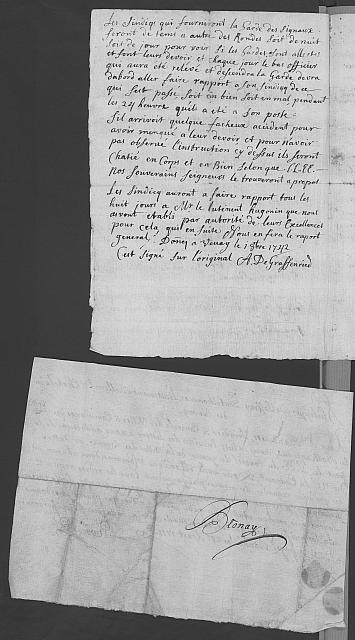 Les Sindicq qui fourniront la Garde des Signaux
feront de tems a autre des Rondes Soit de nuit
Soit de jour pour voir Si les Gardes sont allertes
et font leurs devoir et chaque jour le bas officier
qui aura été relevé et descendra la Garde devra
dabord aller faire rapport a son Sindicq de ce
qui Sest passé Soit en bien Soit en mal pendant
les 24 heures quil a été a Son poste
Sil arrivoit quelque facheux accident pour
avoir menqué a leur devoir et pour n'avoir
pas observé l'instruction cy dessus ils seront
Chatié en Corps et en Bien Selon que LL.EE.
Nos Souverains Seigneurs le trouveront a propos
Les Sindicq auront a faire rapport tous les
huit jours a Mr le lieutenant hugonin que nous
avons établi par autorité de leurs Excellences
pour cela qui en suite Nous en fera le raport
general. Donné a Vevay le 1 9bre 1742
C'est signé Sur l'original A. DeGraffenried
Blonay